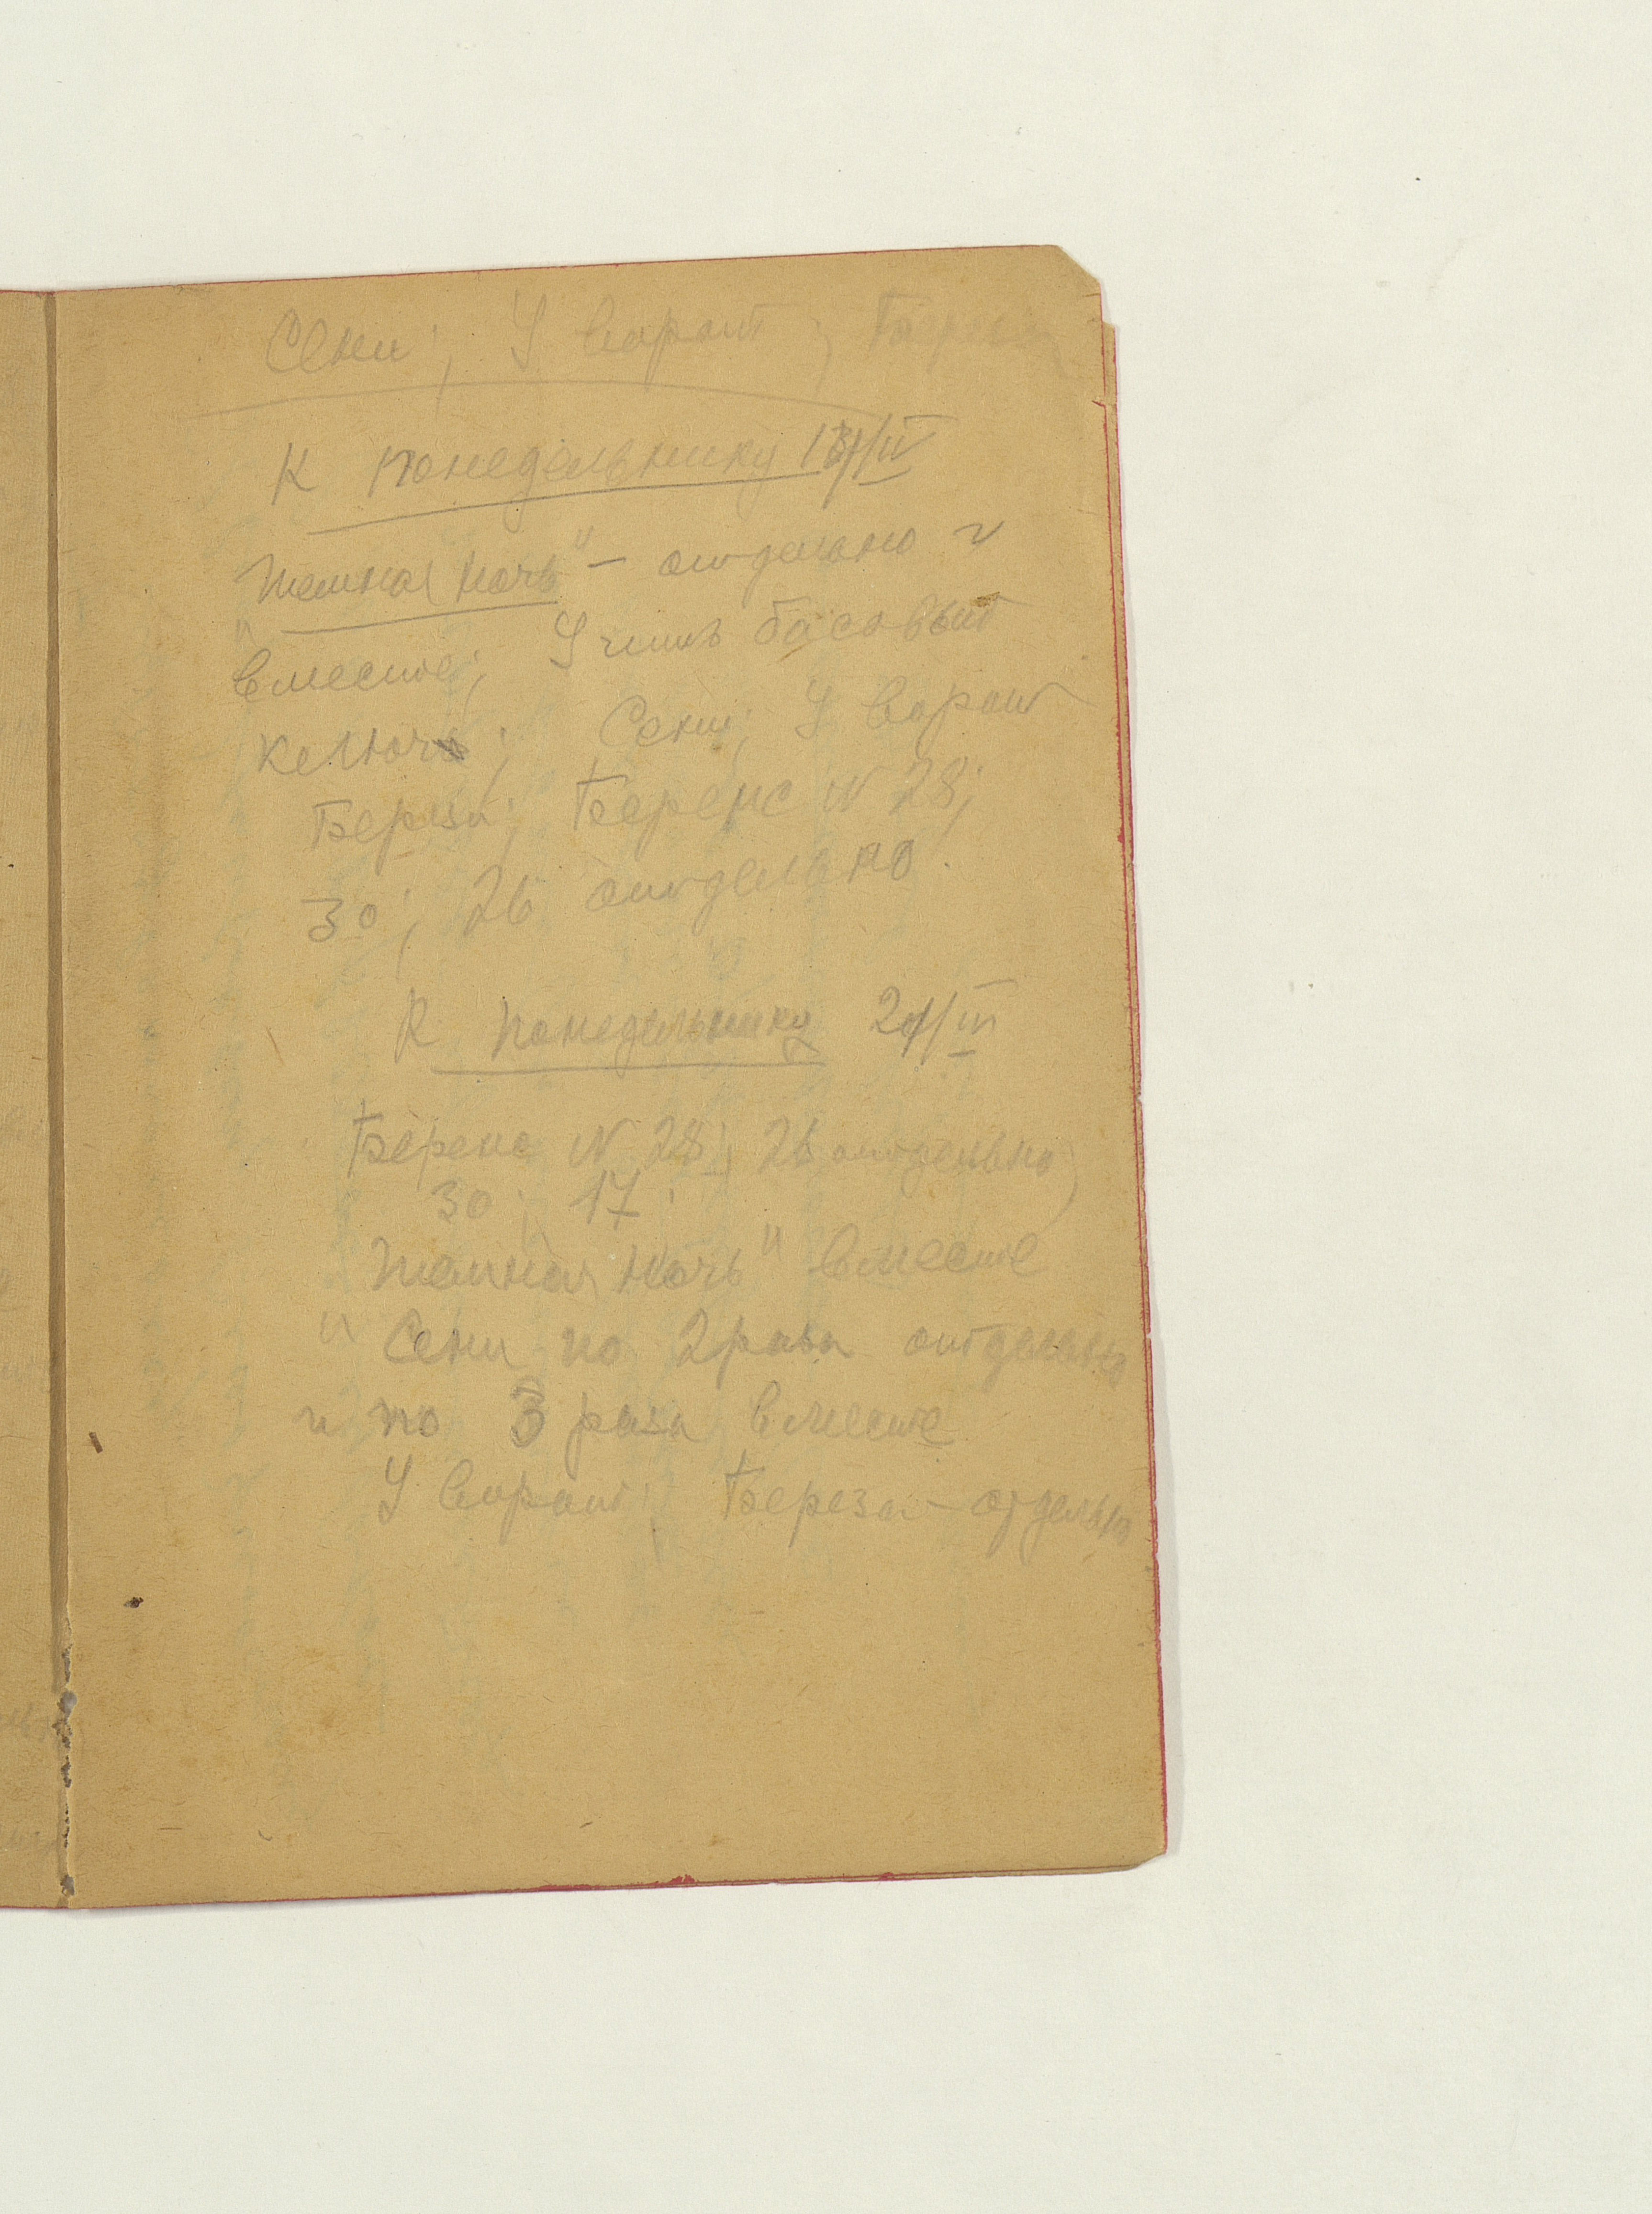 Сени; У ворот; Береза
К понедельнику
"Темная ночь" – отдельно и
вместе; Учить басовый
ключ; Сени; У ворот
Береза; Беренс N 28;
30; 26 отдельно.
К понедельнику /III
Беренс N 28; 26 отдельно;
30; 17;
"Темная ночь" вместе
Сени по 2 раза отдельно
и по 3 раза вместе
У ворот; Береза – отдельно